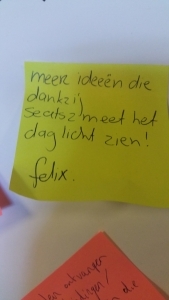 meer ideeën die
dankzij
seats2meet het
daglicht zien!
felix.
ontvangen
die